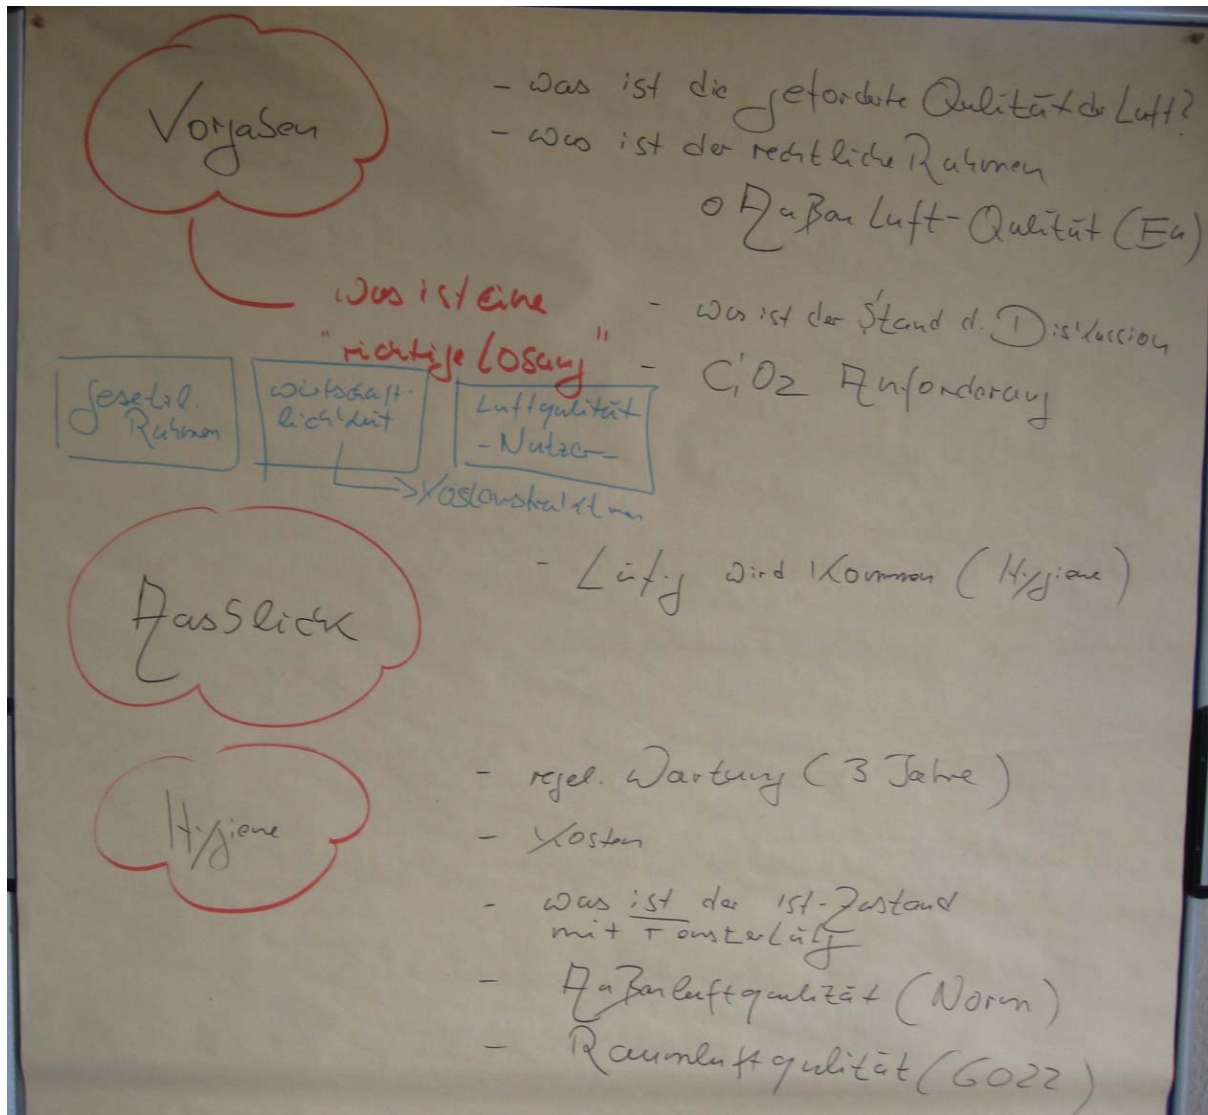 Vorgaben
- was ist die geforderte Qulität der Luft?
- was ist der rechtliche Rahmen
o Außen Luft-Qulität (Eu)
was ist eine
"richtige Lösung"
- was ist der Stand d. Diskussion
- CO2 Anforderung
gesetzl.
Rahmen
wirtschaft-
lichkeit
Luftqulität
- Nutzer -
Kostenstrukturen
Ausblick
- Lüftg wird Kommen (Hygiene)
Hygiene
- regel. Wartung (3 Jahre)
- Kosten
- was ist der ist-Zustand
mit Fensterlüftg
- Außenluftqulität (Norm)
- Raumluftqulität (6022)